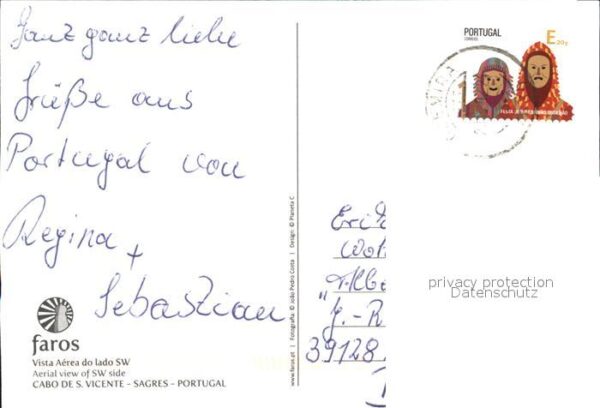 Ganz ganz liebe
Grüße aus
Portugal von
Regina
+
Sebastian
faros
Vista Aérea do lado SW
Aerial view of SW side
CABO DE S. VICENTE - SAGRES - PORTUGAL
www.faros.pt | Fotografia: © João Pedro Costa | Design: © Planeta C
PORTUGAL
E20g
39128
privacy protection
Datenschutz